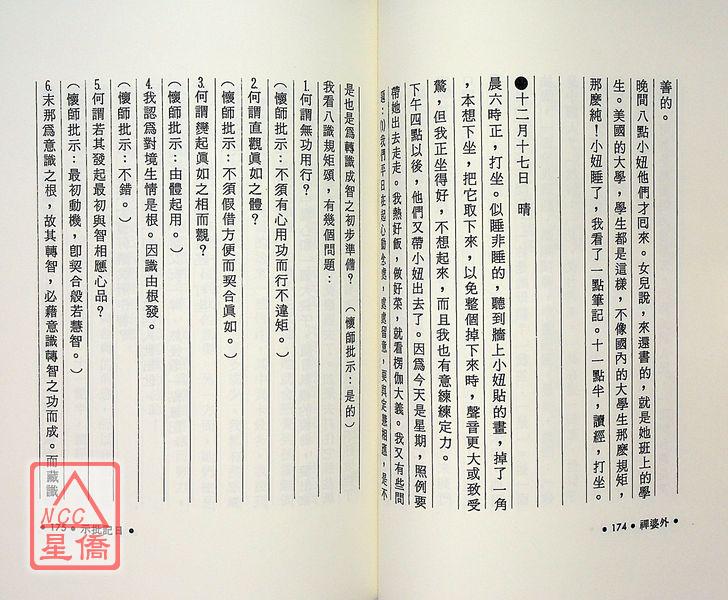 善的。
晚間八點小妞他們才囘來。女兒說，來還書的，就是她班上的學
生。美國的大學，學生都是這樣，不像國內的大學生那麽規矩，
那麽純！小妞睡了，我看了一點筆記。十一點半，讀經，打坐。
●十二月十七日　晴
晨六時正，打坐。似睡非睡的，聽到牆上小妞貼的畫，掉了一角
，本想下坐，把它取下來，以免整個掉下來時，聲音更大或致受
驚，但我正坐得好，不想起來，而且我也有意練練定力。
下午四點以後，他們又帶小妞出去了。因爲今天是星期，照例要
帶她出去走走。我熱好飯，做好菜，就看楞伽大義。我又有些問
題：⑴我們平日在起心動念處，處處留意，要與定慧相應，是不
外婆禪 ● 174 ●
是也是爲轉識成智之初步準備？　（懷師批示：是的）
我看八識規矩頌，有幾個問題：
1.何謂無功用行？
（懷師批示：不須有心用功而行不違矩。）
2.何謂直觀眞如之體？
（懷師批示：不須假借方便而契合眞如。）
3.何謂變起眞如之相而觀？
（懷師批示：由體起用。）
4.我認爲對境生情是根。因識由根發。
（懷師批示：不錯。）
5.何謂若其發起最初與智相應心品？
（懷師批示：最初動機，卽契合般若慧智。）
6.末那爲意識之根，故其轉智，必藉意識轉智之功而成。而藏識
● 175 ● 日記批示
NCC
星僑